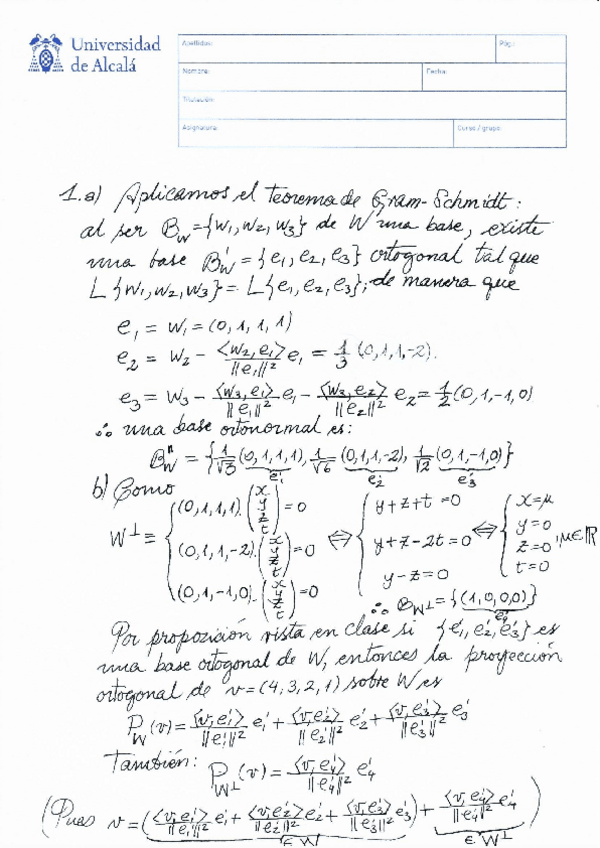 Universidad
de Alcalá
Apellidos: Pág.:
Nombre: Fecha:
Titulación:
Asignatura: Curso / grupo:
1.a) Aplicamos el teorema de Gram-Schmidt:
al ser B_W = {w₁, w₂, w₃} de W una base, existe
una base B'_W = {e₁, e₂, e₃} ortogonal tal que
L{w₁, w₂, w₃} = L{e₁, e₂, e₃}; de manera que
e₁ = w₁ = (0, 1, 1, 1)
e₂ = w₂ - <w₂, e₁>/||e₁||² e₁ = 1/3 (0, 1, 1, -2).
e₃ = w₃ - <w₃, e₁>/||e₁||² e₁ - <w₃, e₂>/||e₂||² e₂ = 1/2 (0, 1, -1, 0)
∴ una base ortonormal es:
B''_W = {1/√3 (0, 1, 1, 1), 1/√6 (0, 1, 1, -2), 1/√2 (0, 1, -1, 0)}
e'₁ e'₂ e'₃
b) Como
W⊥ ≡ { (0, 1, 1, 1)·(x y z t) = 0 ⇔ { y + z + t = 0 ⇔ { x = μ
(0, 1, 1, -2)·(x y z t) = 0 y + z - 2t = 0 y = 0
(0, 1, -1, 0)·(x y z t) = 0 y - z = 0 z = 0, μ ∈ ℝ
t = 0
∴ B_W⊥ = {(1, 0, 0, 0)}
e'₄
Por proposición vista en clase si {e'₁, e'₂, e'₃} es
una base ortogonal de W, entonces la proyección
ortogonal de v = (4, 3, 2, 1) sobre W es
P_W(v) = <v, e'₁>/||e'₁||² e'₁ + <v, e'₂>/||e'₂||² e'₂ + <v, e'₃>/||e'₃||² e'₃
También: P_W⊥(v) = <v, e'₄>/||e'₄||² e'₄
(Pues v = (<v, e'₁>/||e'₁||² e'₁ + <v, e'₂>/||e'₂||² e'₂ + <v, e'₃>/||e'₃||² e'₃) + <v, e'₄>/||e'₄||² e'₄)
∈ W ∈ W⊥